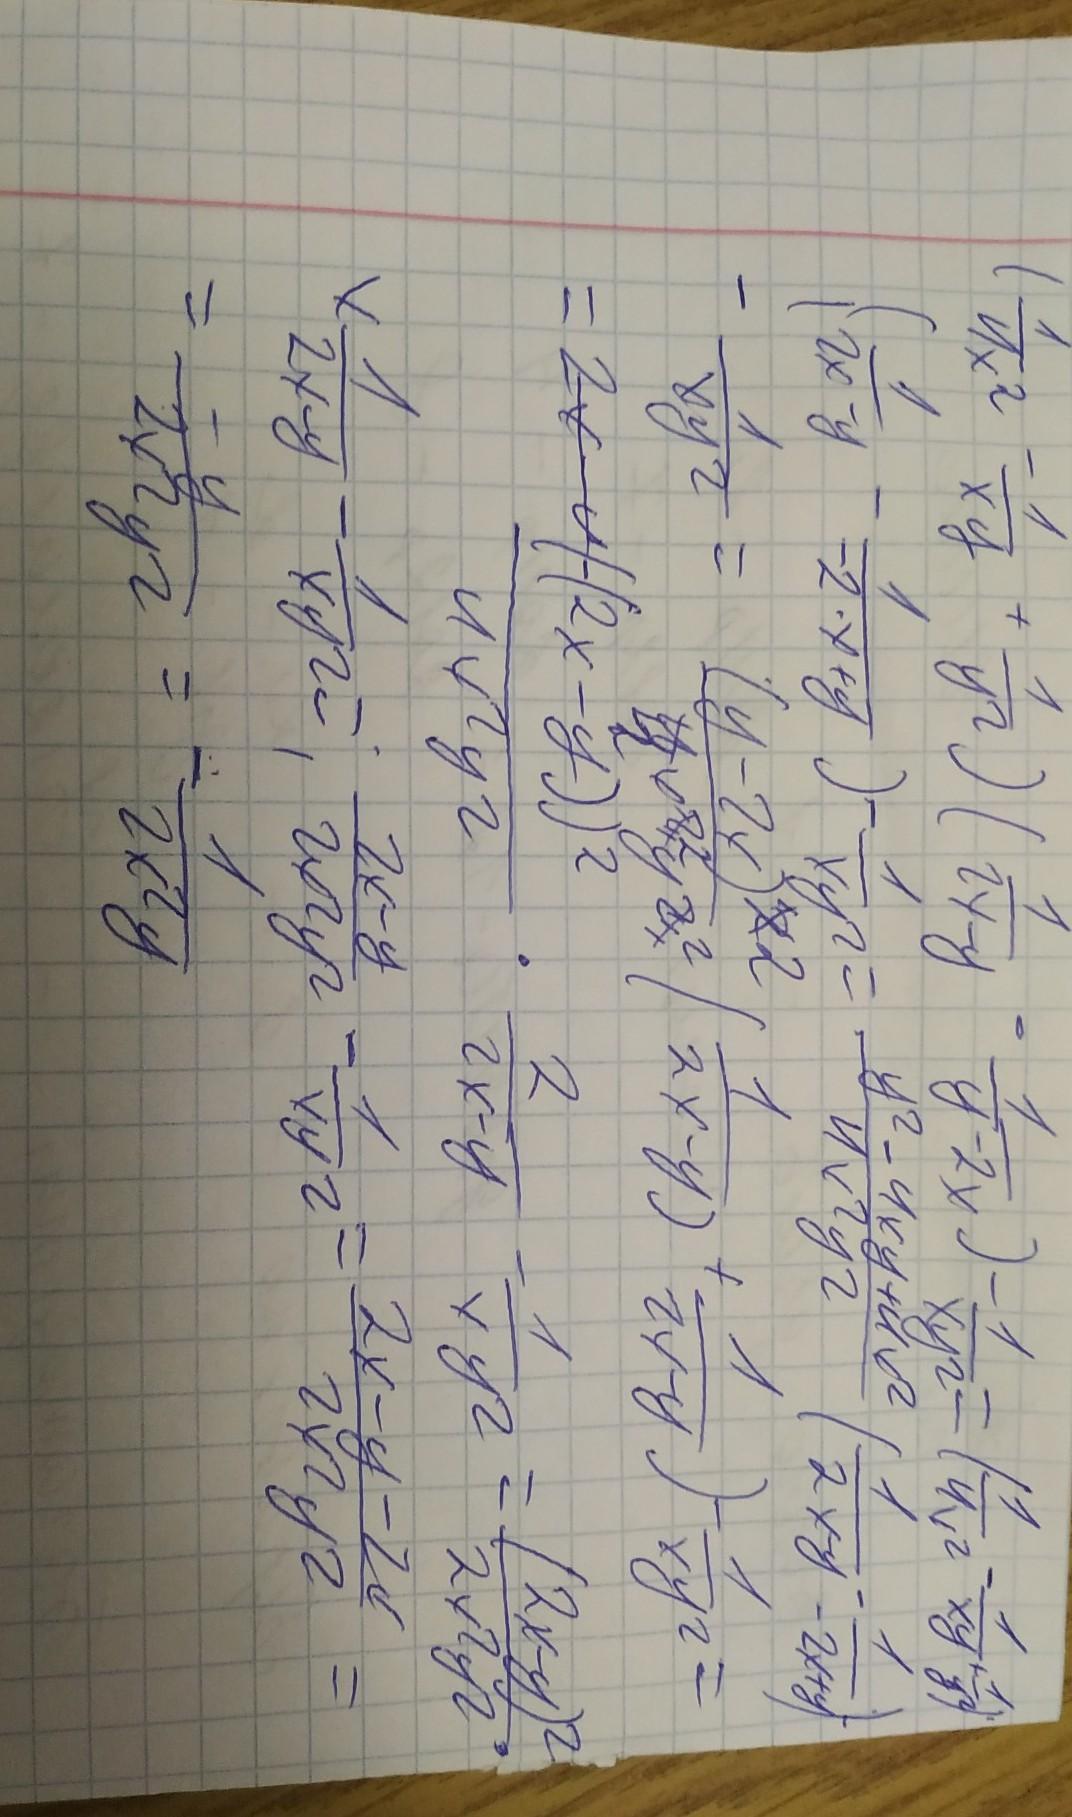 (1/4x² - 1/xy + 1/y²)(1/2x-y · 1/y-2x) - 1/xy² = (1/4x² - 1/xy + 1/y²)·
(1/2x-y - 1/-2·x+y) - 1/xy² = y²-4xy+4x²/4x²y² (1/2x-y - 1/-2x+y)-
- 1/xy² = (y-2x)²/4x²y² (1/2x-y) + 1/2x-y) - 1/xy² =
= (2x-y)²/4x²y² · 2/2x-y - 1/xy² = (2x-y)²/2x²y² ·
x 1/2x-y - 1/xy² = 2x-y/2x²y² - 1/xy² = 2x-y-2x/2x²y² =
= -y/2x²y² = - 1/2x²y